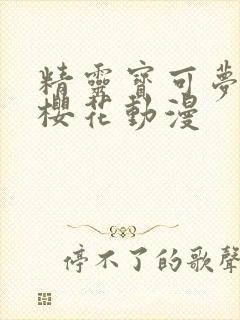 精靈寶可夢
櫻花動漫
停不了的歌聲